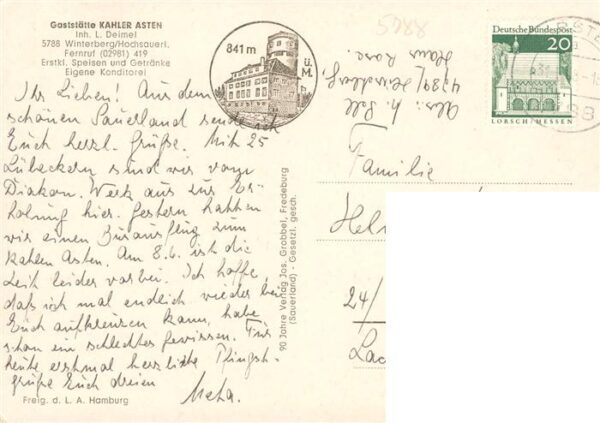 Gaststätte KAHLER ASTEN
Inh. L. Deimel
5788 Winterberg/Hochsauerl.
Fernruf (02981) 419
Erstkl. Speisen und Getränke
Eigene Konditorei
841 m
ü.M.
Ihr Lieben! Aus dem
schönen Sauerland sende ich
Euch herzl. Grüße. Mit 25
Lübeckern sind wir vom
Diakon. Werk aus zur Er-
holung hier. Gestern hatten
wir einen Busausflug zum
kahlen Asten. Am 8.6. ist die
Zeit leider vorbei. Ich hoffe,
daß ich mal endlich wieder bei
Euch aufkreuzen kann, habe
schon ein schlechtes Gewissen. Für
heute erstmal herzliche Pfingst-
grüße Euch dreien
Meta.
Freig. d. L. A. Hamburg
90 Jahre Verlag Jos. Grobbel, Fredeburg
(Sauerland) - Gesetzl. gesch.
Abs.: M.
Haus Rose.
Deutsche Bundespost
20
LORSCH/HESSEN
Familie
24/